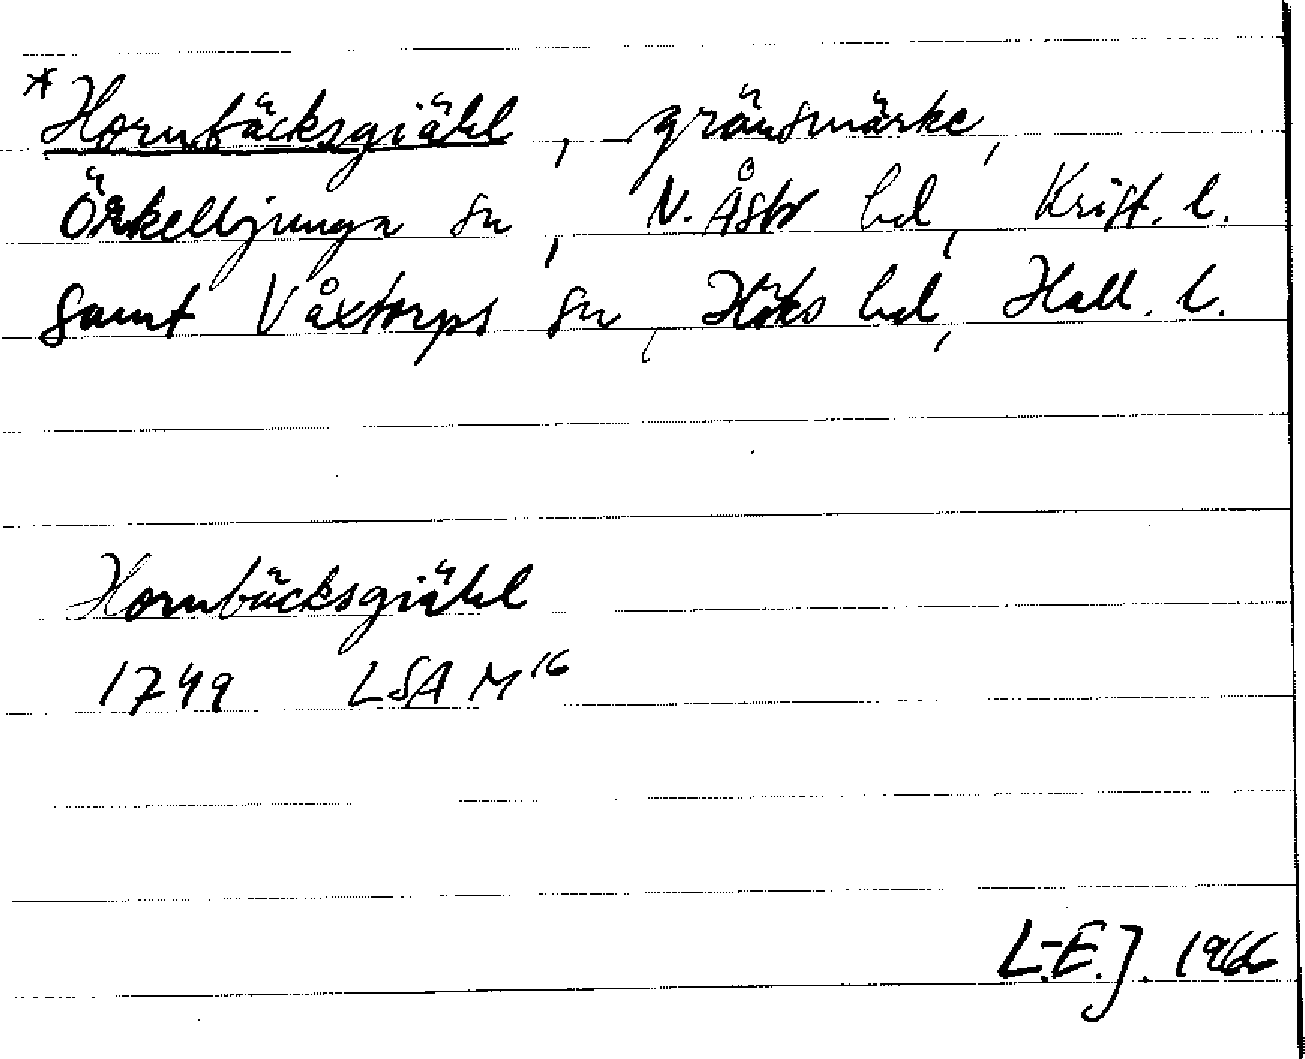 *Hornbäcksgiähl, gränsmärke,
Örkelljunga sn, N. Åsbo hd, Krist. l.
samt Våxtorps sn, Höks hd, Hall. l.
Hornbäcksgiähl
1749 LSA M16
L.-E.J. 1966